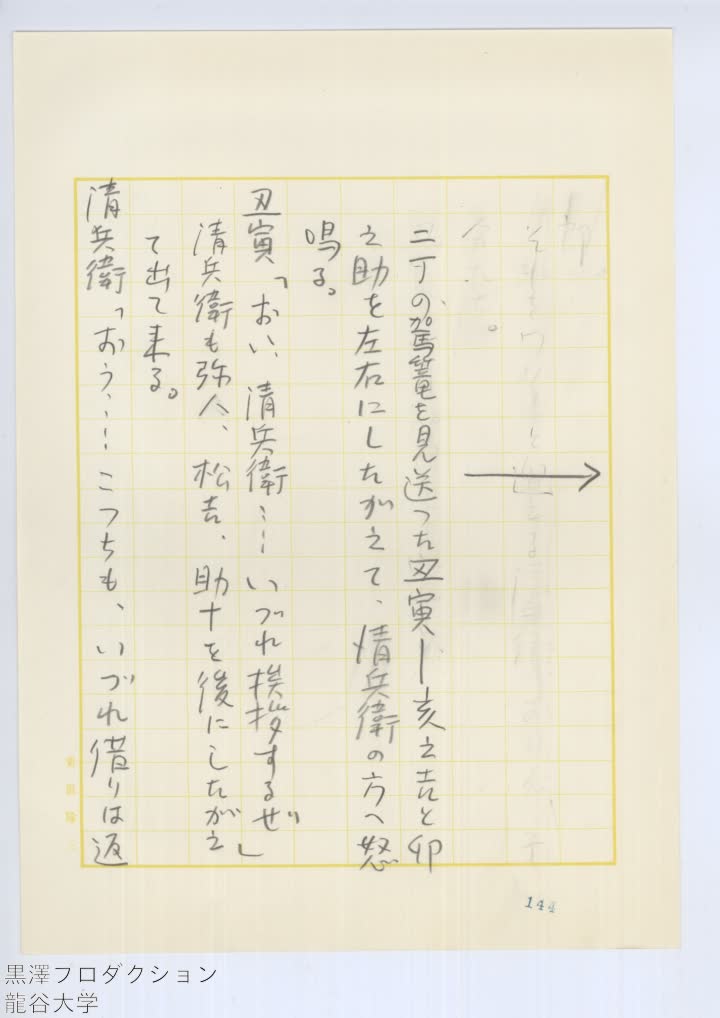 二丁の駕篭を見送つた丑寅――亥之吉と卯
之助を左右にしたがえて、清兵衛の方へ怒
鳴る。
丑寅「おい、清兵衛……いづれ挨拶するぜ」
清兵衛も弥八、松吉、助十を後にしたがえ
て出て来る。
清兵衛「おう、……こつちも、いづれ借りは返
144
黒澤プロダクション
龍谷大学